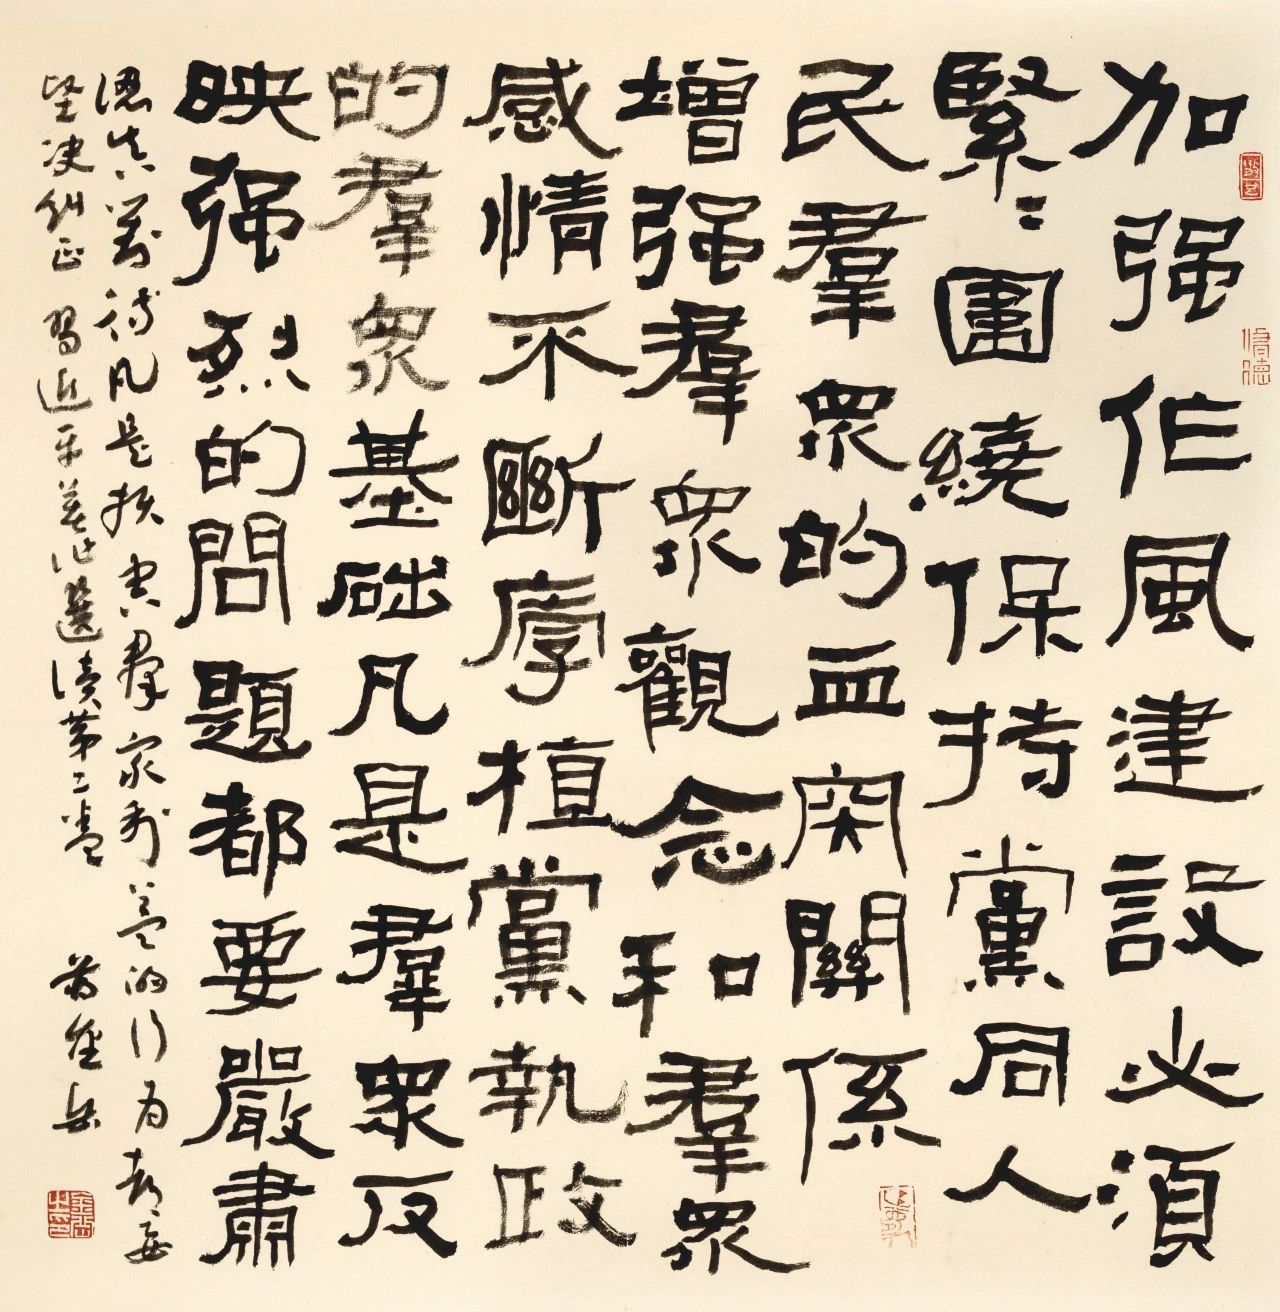 加强作風建設必須
緊〻圍繞保持黨同人
民羣衆的血肉關係
增强羣衆觀念和羣衆
感情不斷厚植黨執政
的羣衆基础凡是羣衆反
映强烈的問題都要嚴肅
認真對待凡是損害羣衆利益的行为都要
坚决纠正 習近平著作選讀第二卷
修德